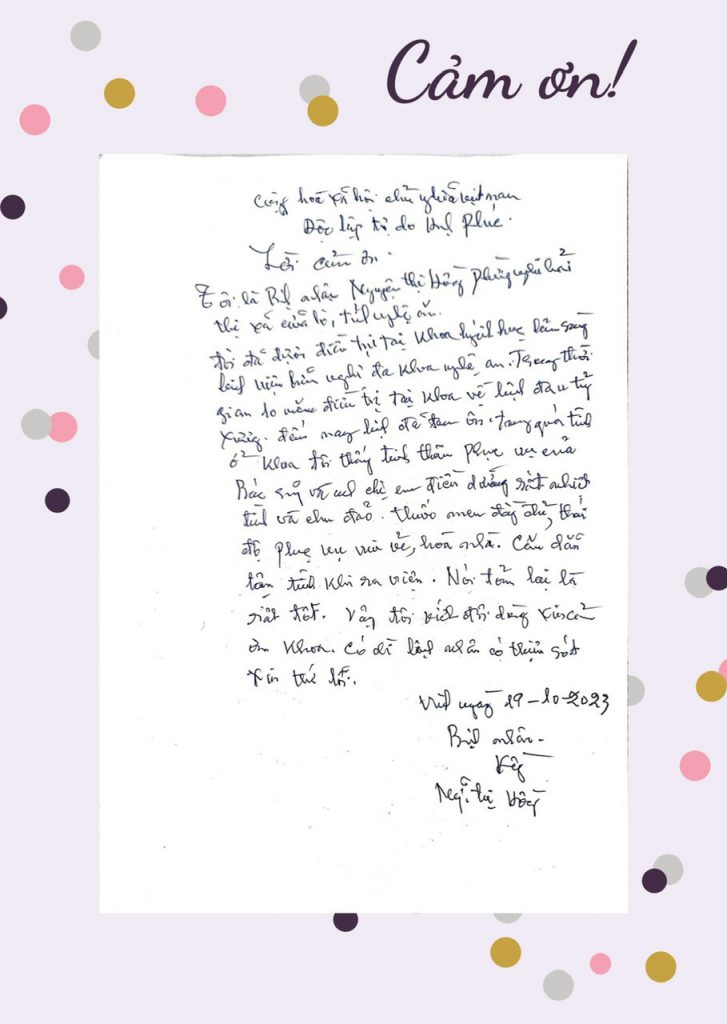 Cảm ơn!
Cộng hoà xã hội chủ nghĩa việt nam
Độc lập tự do Hạnh Phúc.
Lời cảm ơn.
Tôi là Bệnh nhân Nguyễn Thị Hồng phường nghi hải
thị xã cửa lò, tỉnh nghệ an.
tôi đã được điều trị tại khoa huyết học lâm sàng
bệnh viện hữu nghị đa khoa nghệ an. Trong thời
gian 10 năm điều trị tại khoa về bệnh đau tuỷ
xương. đến nay bệnh đã tạm ổn, trong quá trình
ở khoa tôi thấy tinh thần phục vụ của
Bác sỹ và anh chị em điều dưỡng rất nhiệt
tình và chu đáo. thuốc men đầy đủ, thái
độ phục vụ vui vẻ, hoà nhã. Căn dặn
tận tình khi ra viện. Nói tóm lại là
rất tốt. Vậy tôi viết đôi dòng xin cảm
ơn khoa. Có gì bệnh nhân có thiếu sót
xin thứ lỗi.
ngày 19-10-2023
Bệnh nhân.
Ký
Ng. thị Hồng